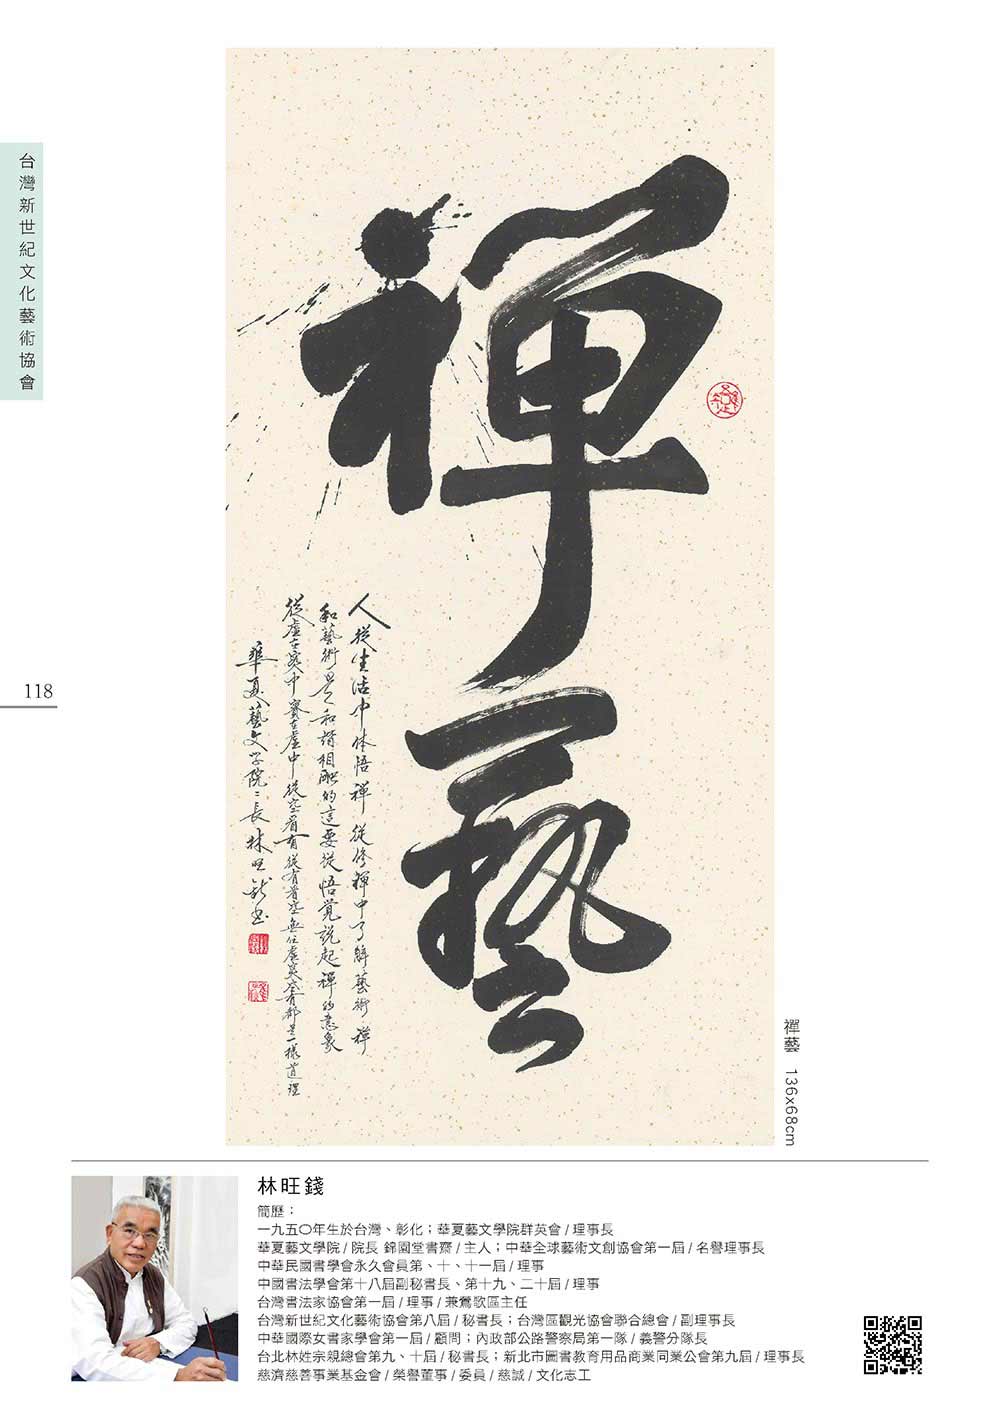 台灣新世紀文化藝術協會
118
禪藝
人從生活中体悟禪從修禪中了解藝術禪
和藝術是和諧相融的這要從悟覺說起禪的意象
從虛在實中實在虛中從空看有從有看空無住虛實空有都是一樣道理
華夏藝文学院〻長林旺錢書
禪藝 136x68cm
林旺錢
簡歷：
一九五〇年生於台灣、彰化；華夏藝文學院群英會 / 理事長
華夏藝文學院 / 院長 錦園堂書齋 / 主人；中華全球藝術文創協會第一屆 / 名譽理事長
中華民國書學會永久會員第、十、十一屆 / 理事
中國書法學會第十八屆副秘書長、第十九、二十屆 / 理事
台灣書法家協會第一屆 / 理事 / 兼鶯歌區主任
台灣新世紀文化藝術協會第八屆 / 秘書長；台灣區觀光協會聯合總會 / 副理事長
中華國際女書家學會第一屆 / 顧問；內政部公路警察局第一隊 / 義警分隊長
台北林姓宗親總會第九、十屆 / 秘書長；新北市圖書教育用品商業同業公會第九屆 / 理事長
慈濟慈善事業基金會 / 榮譽董事 / 委員 / 慈誠 / 文化志工